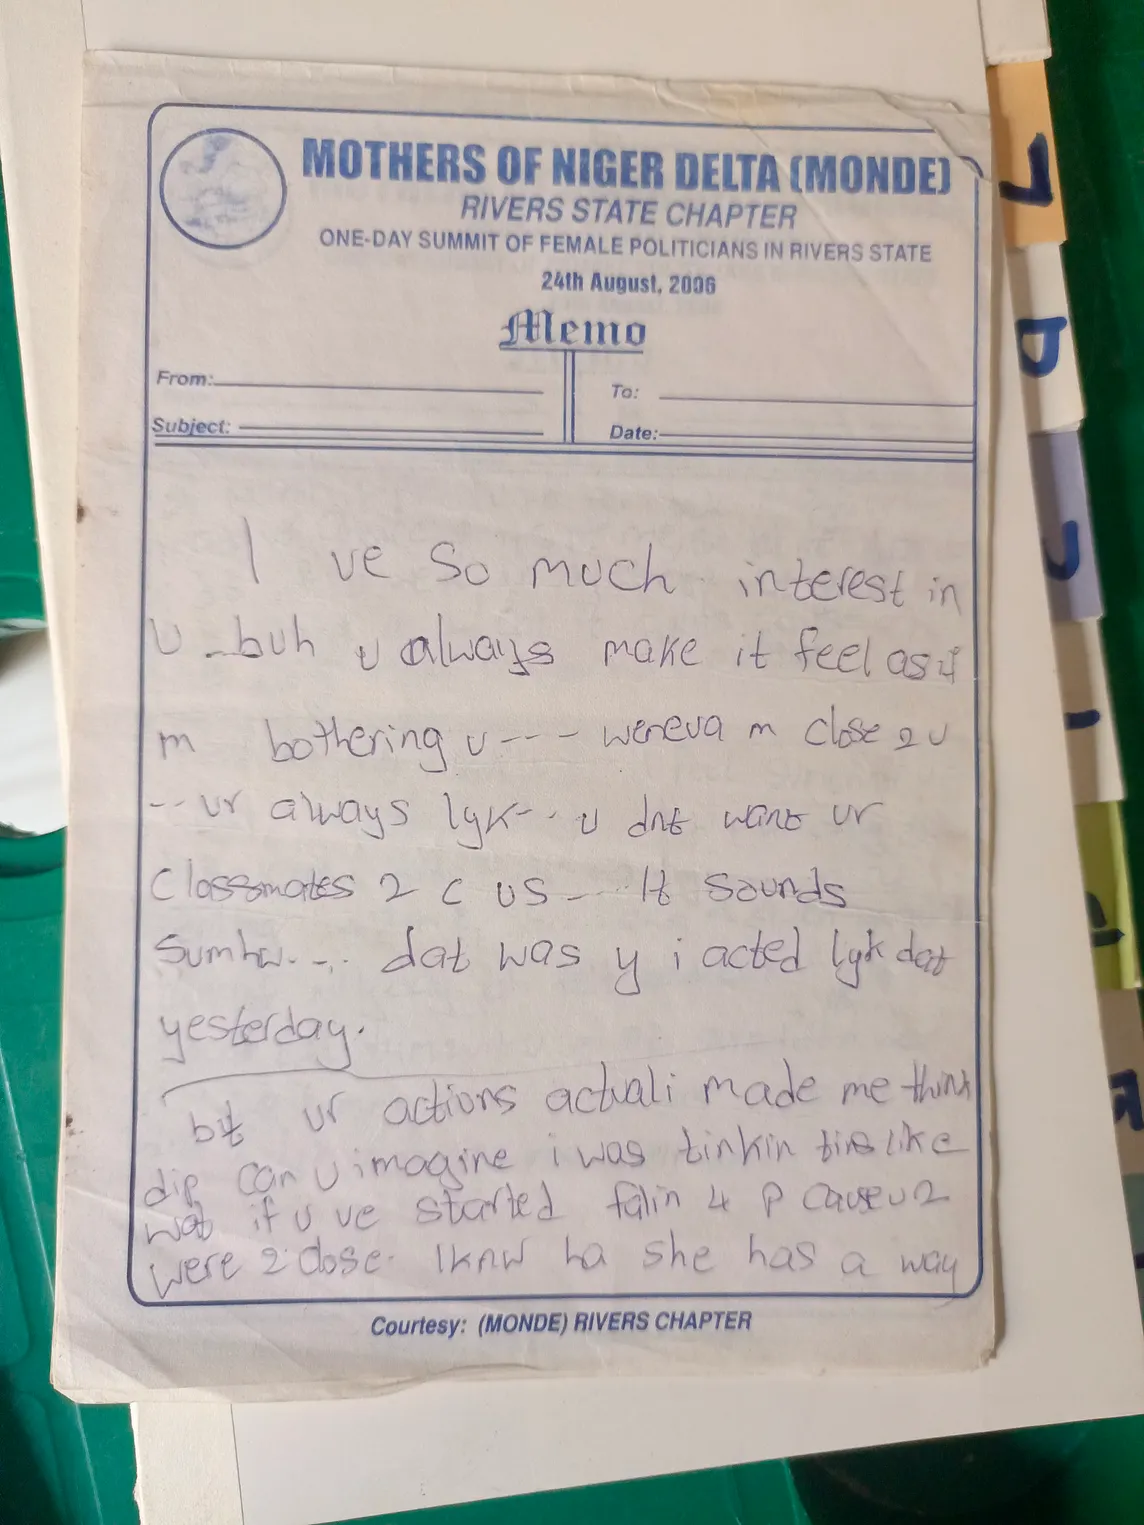 MOTHERS OF NIGER DELTA (MONDE)
RIVERS STATE CHAPTER
ONE-DAY SUMMIT OF FEMALE POLITICIANS IN RIVERS STATE
24th August, 2006
Memo
From:
To:
Subject:
Date:
I ve so much interest in
U --buh u always make it feel as if
m bothering u---- weneva m close 2 u
--ur always lyk--- u dnt want ur
classmates 2 c us--- It sounds
sumhw---- dat was y i acted lyk dat
yesterday.
bt ur actions actuali made me think
dip can u imagine i was tinkin tins like
wat if u ve started falin 4 P cause u 2
were 2 close. I knw ha she has a way
Courtesy: (MONDE) RIVERS CHAPTER